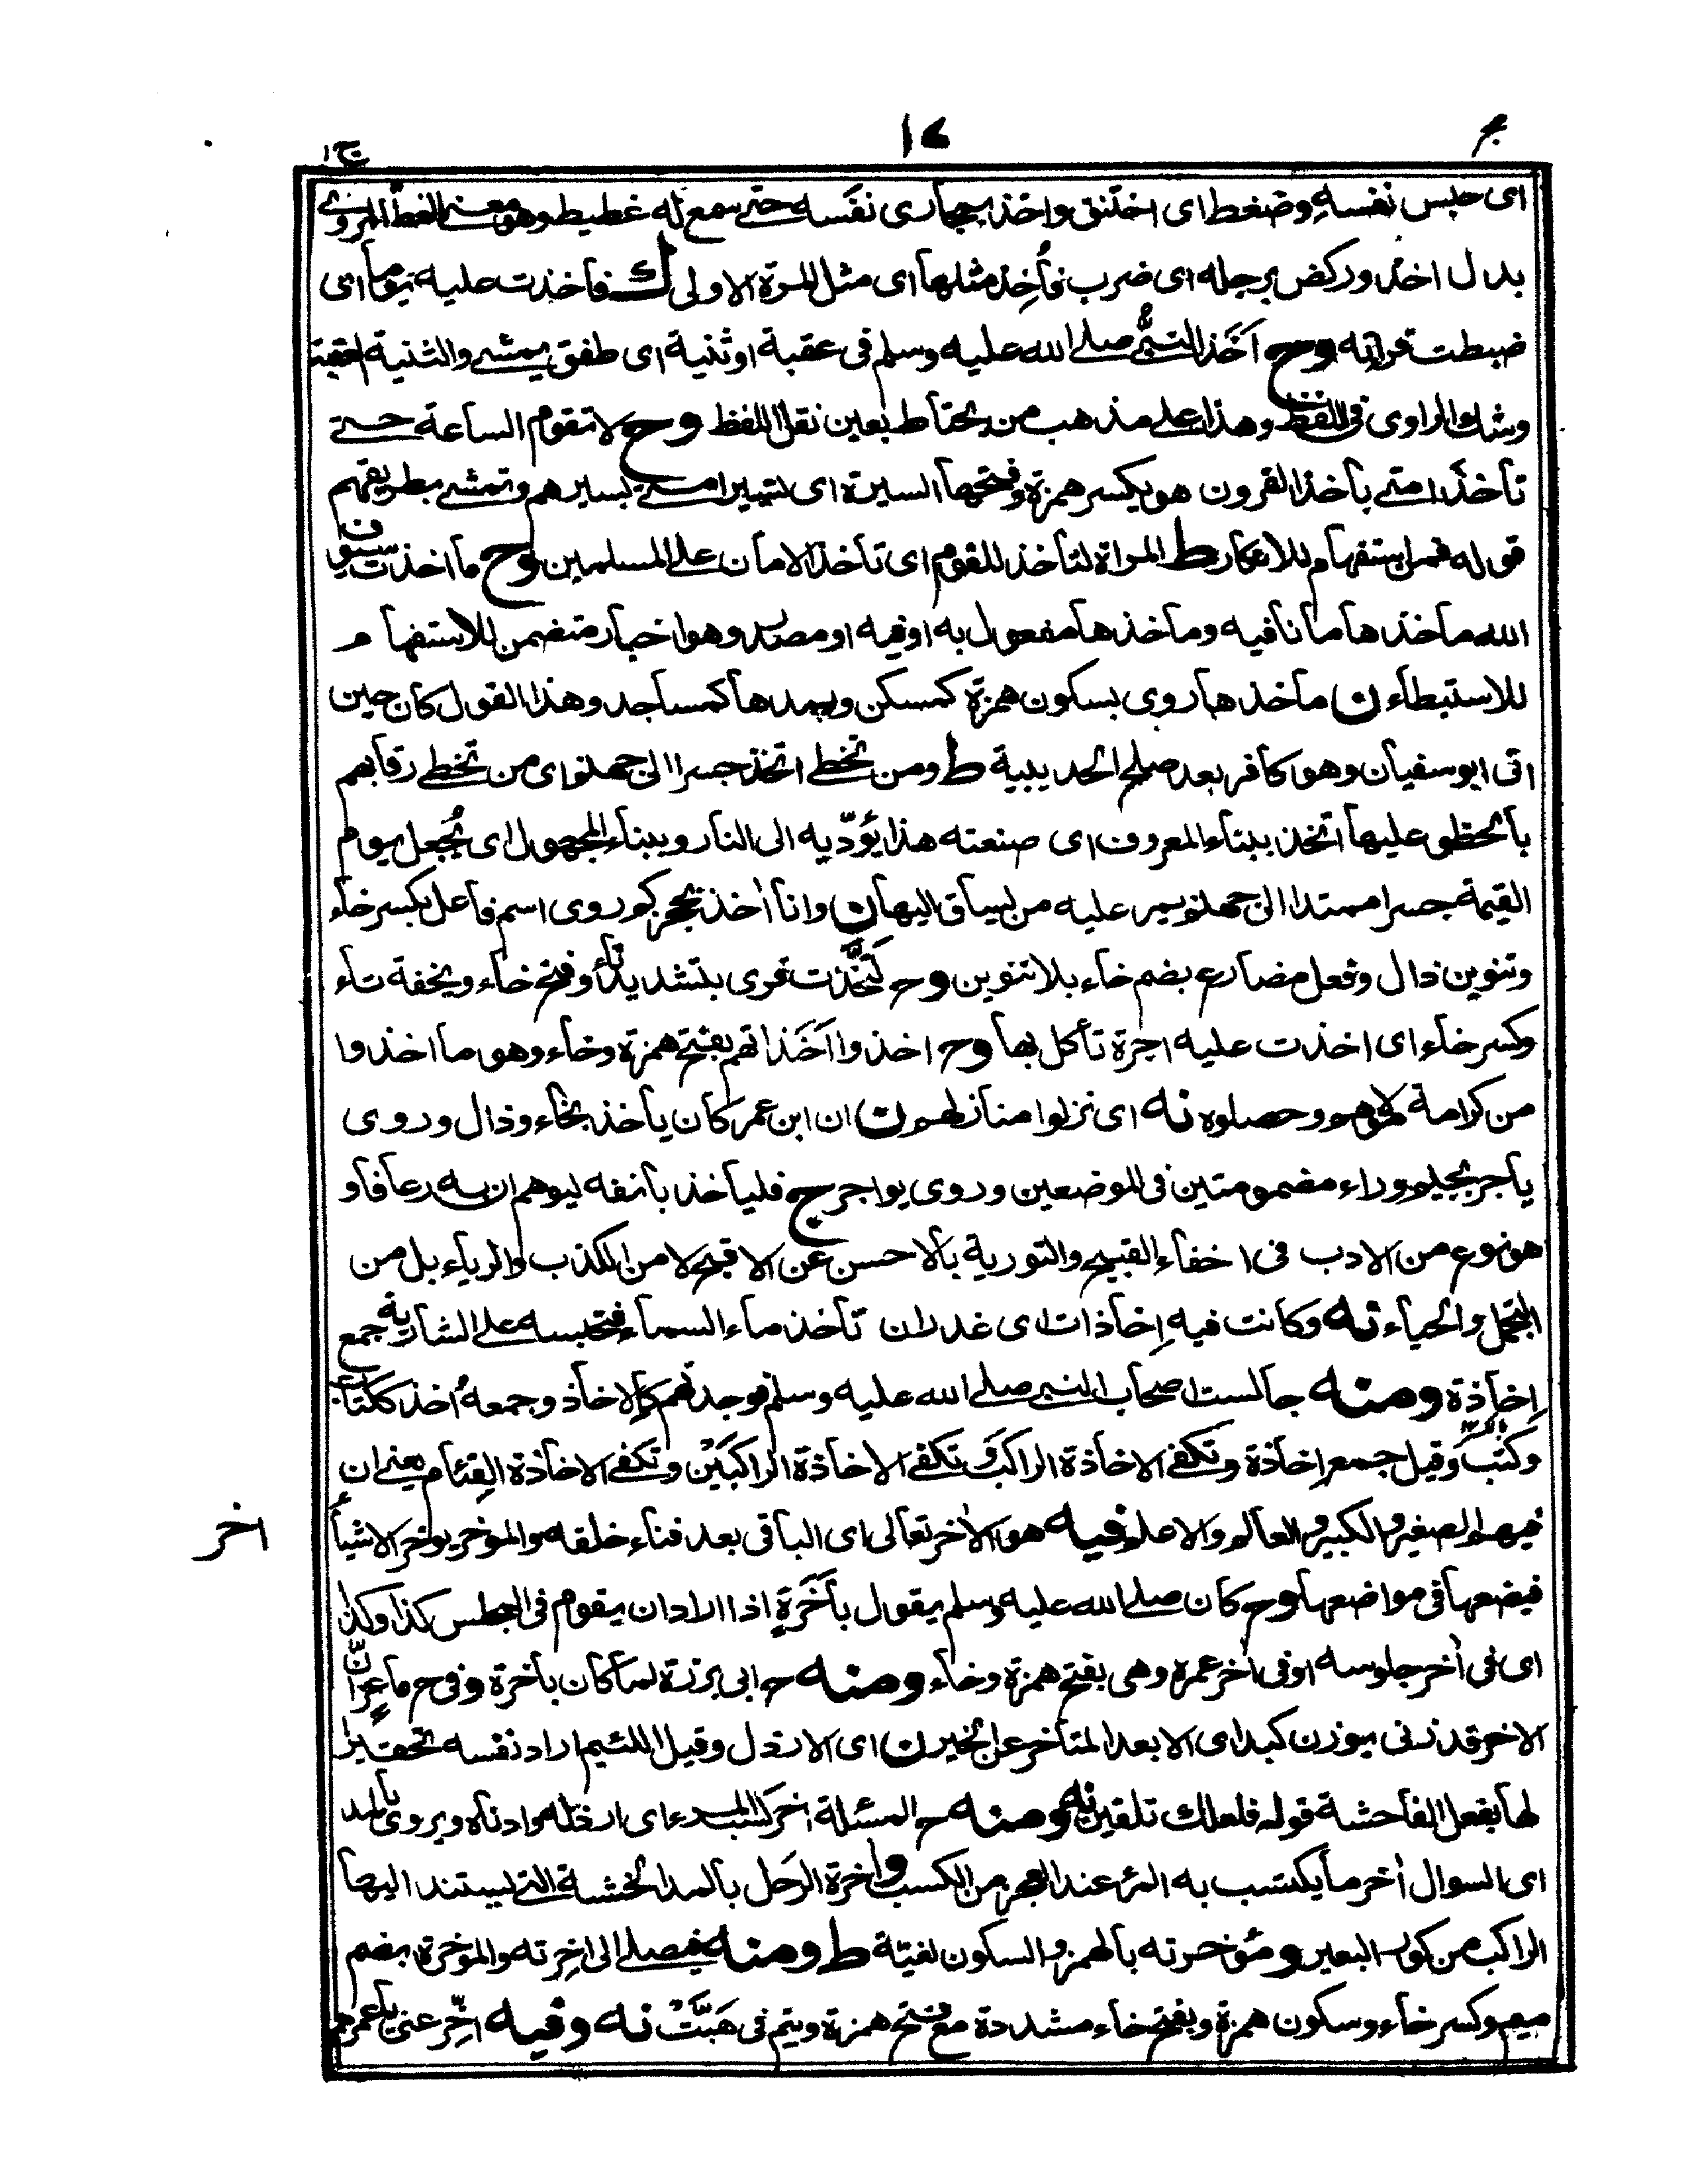 ج۱
۱۷
ای حبس نفسه وضغط ای اختنق واخذ بمجاری نفسه حتے سمع له غطیط وهو معنے الغط المروی
بدل اخذ ورکض برجله ای ضرب فأخذ مثلها ای مثل المرة الاولی ك فأخذت علیه یوما ای
ضبطت قراءته وح أخذ النبی صلے الله علیه وسلم فی عقبة او ثنیة ای طفق یمشے والثنیة العقبة
وشك الراوی فی اللفظ وهذا علے مذهب من یحتاط بعین نقل اللفظ وح لا تقوم الساعة حتے
تأخذ امتے بأخذ القرون هو بکسر همزة وفتحها السیرة ای لتسیر امتے بسیرهم وتمشے بطریقهم
قوله فمن استفهام للانکار ط المراة لتأخذ للقوم ای تأخذ الامان علے المسلمین وح ما اخذت سیوف
الله مأخذها ما نافیه ومأخذها مفعول به او فیه او مصدر وهو اخبار متضمن للاستفهام
للاستبطاء ن مأخذها روی بسکون همزة کمسکن وبمدها کمساجد وهذا القول کان حین
اتی ابو سفیان وهو کافر بعد صلح الحدیبیة ط ومن تخطے اتخذ جسرا الی جهنم ای من تخطے رقابهم
بالخطو علیها اتخذ ببناء المعروف ای صنعته هذا یؤدّیه الی النار وببناء المجهول ای یُجعل یوم
القیمة جسرا ممتدا الی جهنم یمر علیه من یساق الیها ن وانا اٰخذ بحجزکم روی اسم فاعل بکسر خاء
وتنوین ذال وفعل مضارع بضم خاء بلا تنوین وح لتخذت قری بتشدید تاء وفتح خاء وبخفة تاء
وکسر خاء ای اخذت علیه اجرة تأکل بها وح اخذوا اَخَذاتهم بفتح همزة وخاء وهو ما اخذوا
من کرامة لهم وحصلوه نه ای نزلوا منازلهم ن ان ابن عمر کان یأخذ بخاء وذال وروی
یأجر بجیم وراء مضمومتین فی الموضعین وروی یواجر ج فلیأخذ بأنفه لیوهم ان به رعافا و
هو نوع من الادب فی اخفاء القبیح والتوریة بالاحسن عن الاقبح لا من الکذب والریاء بل من
التجمل والحیاء نه وکانت فیه إخاذات ای غدران تأخذ ماء السماء فتحبسه علے الشاربة جمع
إخاذة ومنه جالست اصحاب النبے صلے الله علیه وسلم فوجدتهم کالإخاذ وجمعه أخذ ککتاب
وکُتُب وقیل جمع إخاذة وتکفے الاخاذة الراکب وتکفے الاخاذة الراکبَیْن وتکفے الاخاذة الفِئام یعنے ان
فیهم الصغیر والکبیر والعالم والاعلم فیه هو الاٰخر تعالی ای الباقی بعد فناء خلقه والمؤخر یؤخر الاشیاء
اخر
فیضعها فی مواضعها وح کان صلے الله علیه وسلم یقول بأَخَرَةٍ اذا اراد ان یقوم فی المجلس کذا وکذا
ای فی اٰخر جلوسه او فی اٰخر عمره وهی بفتح همزة وخاء ومنه ح ابی برزة لما کان بأخرة وفی ح ماعز انّ
الاخر قد زنی بوزن کبد ای الابعد المتأخر عن الخیر ن ای الارذل وقیل اللئیم اراد نفسه تحقیرا
لها بفعل الفاحشة قوله فلعلك تلقین نه ومنه ح المسئلة اخر کسب المرء ای ارذله وادناه ویروی بالمد
ای السوال اٰخر ما یکتسب به المرء عند العجز من الکسب واٰخرة الرَحل بالمد الخشبة التے یستند الیها
الراکب من کور البعیر ومؤخرته بالهمز والسکون لغیّة ط ومنه فیصلے الی اٰخِرته والمؤخرة بضم
میم وکسر خاء وسکون همزة وبفتح خاء مشددة مع فتح همزة ویتم فی هَبَّتْ نه وفیه اخِّر عنی یا عمر